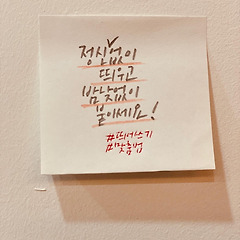 정신없이
띄우고
밤낮없이
붙이세요!
#띄어쓰기
#맞춤법